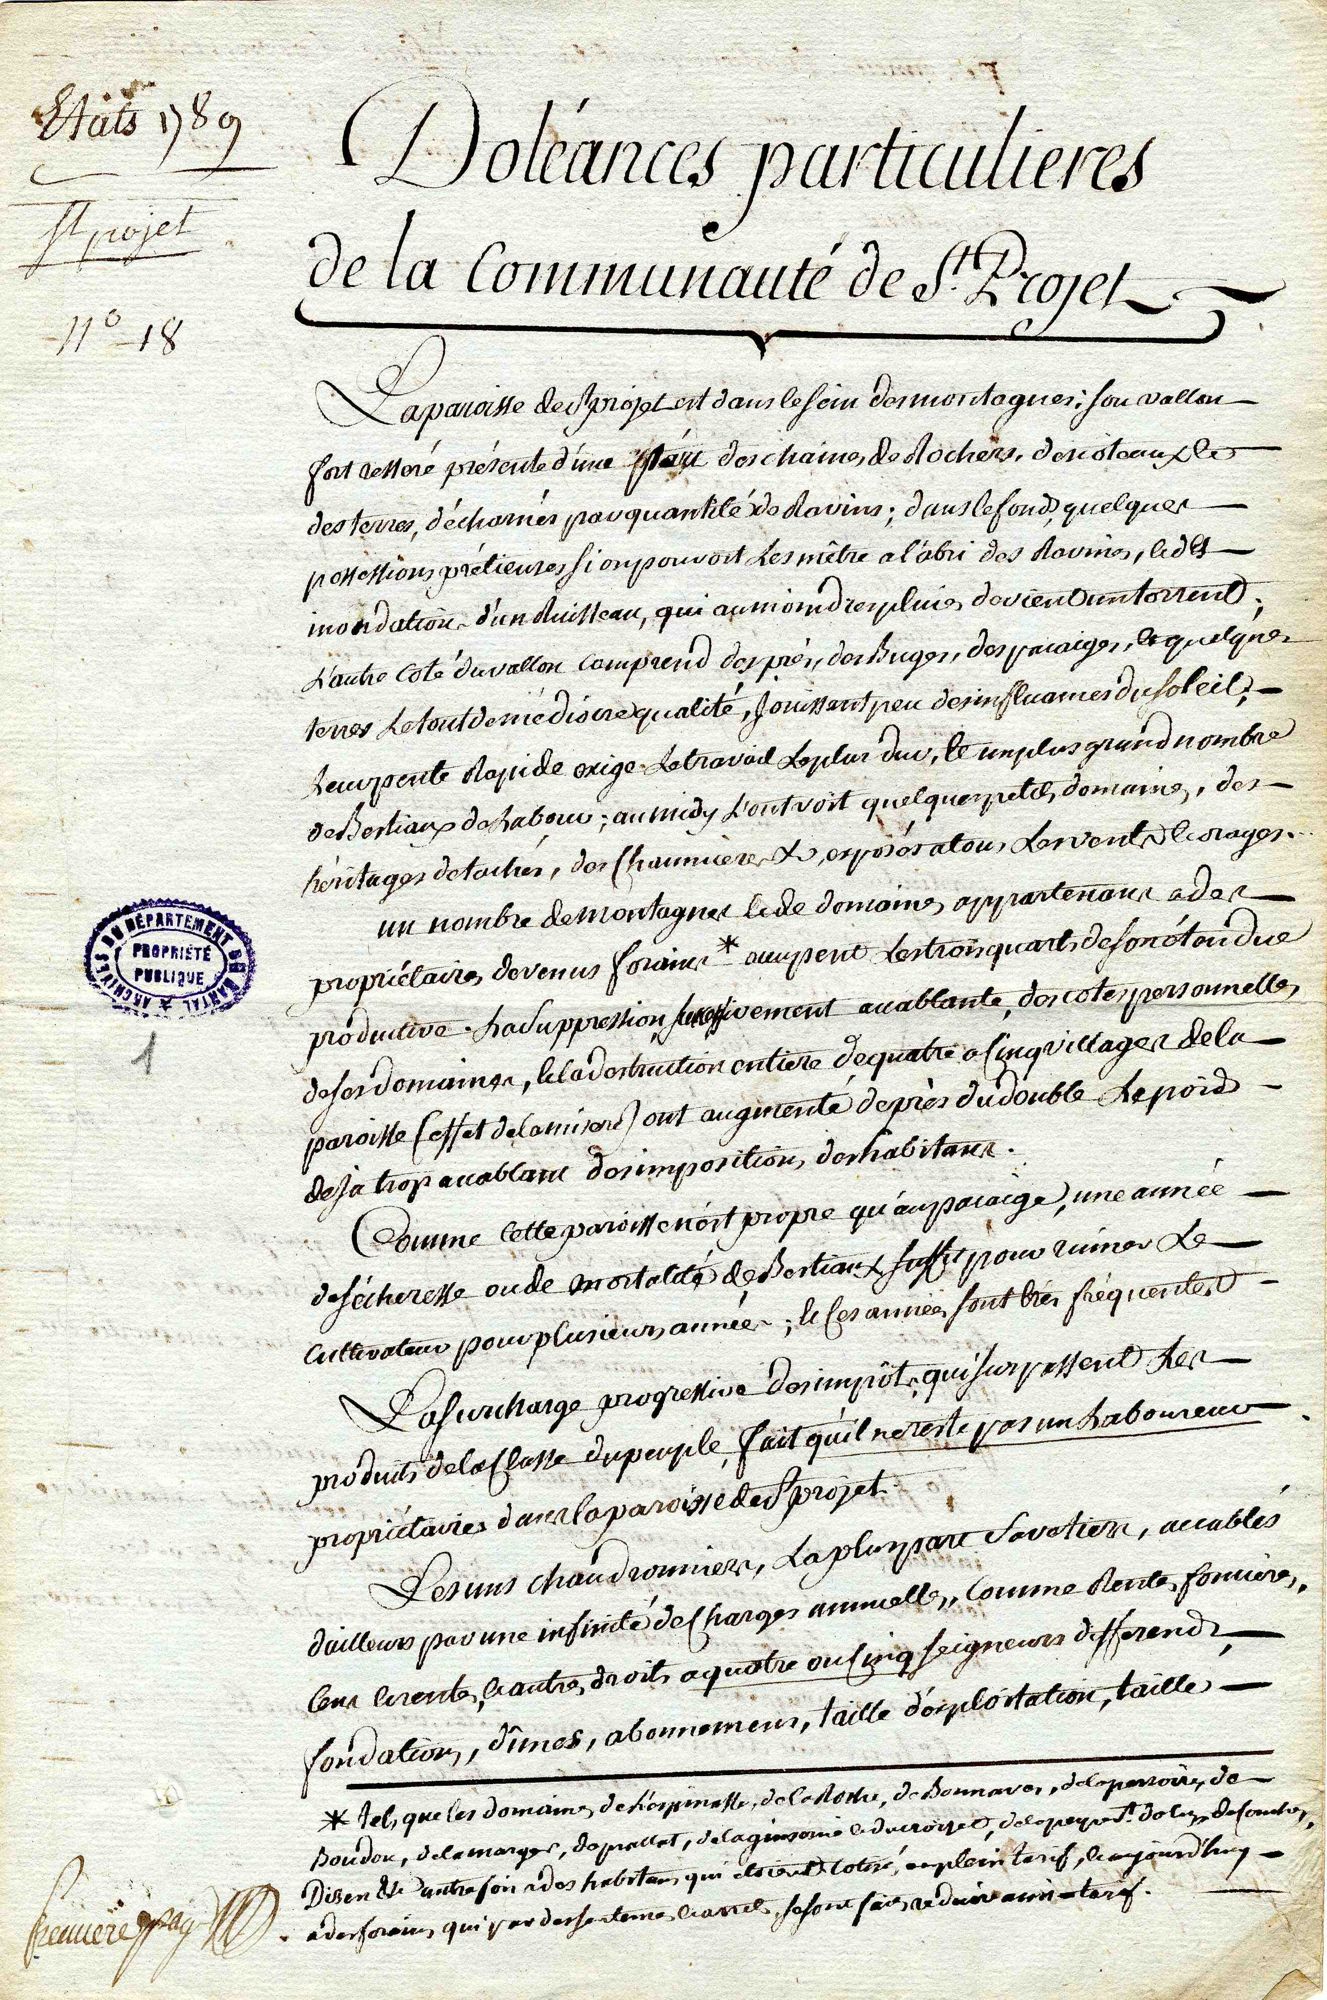 Etats 1789
St projet
n° 18
Doléances particulieres
de la Communauté de St. Projet
La paroisse de St projet est dans le sein des montagnes; son vallon
fort resseré présente d'une part des chaines de Rochers, des coteaux et
des terres, décharnés par quantité de Ravins; dans le fond, quelques
possessions prétieuses si on pouvoit les mêtre a l'abri des Ravines, et des
inondations d'un Ruisseau, qui au moindres pluies devient un torrent;
L'autre coté du vallon comprend des prés, des Buges, des pacaiges, et quelques
terres le tout de médiocre qualité, Jouissant peu des influances du soleil;
leur pente Rapide exige le travail le plus dur, et un plus grand nombre
de Bestiaux de labour; au midy l'ont voit quelques petits domaines, des
héritages detachés, des Chaumieres &, exposés a tous les vents et orages.
un nombre de montagnes et de domaines appartenans a des
propriétaires devenus forains * occupent les trois quarts de son étendue
productive. La suppression successivement accablante, des cotes personnelles
de ses domaines, et la destruction entiere de quatre a Cinq villages de la
paroisse (effet de la misere) ont augmenté de près du double le poid
deja trop accablant des impositions des habitans.
Comme cette paroisse n'est propre qu'au pacaige, une année
de sécheresse ou de mortalité de Bestiaux suffit pour ruiner le
cultivateur pour plusieurs années; et ces années sont très fréquentes
La surcharge progressive des impôts, qui surpassent les
produits de la Classe du peuple, fait qu'il ne reste pas un Laboureur
propriétaires dans la paroisse de St projet.
Les uns chaudronniers, la pluspart Savetiers, accablés
d'ailleurs par une infinité de Charges annuelles, Comme Rentes foncieres,
Cens et rentes, et autres droits a quatre ou Cinq seigneurs differends,
fondations, dîmes, abonnemens, taille d'exploitation, taille
* tels que les domaines de l'espinasse, de la Roche, de Bonnaves, de la perroires, de
Boudou, de la marges, de pallat, de la ginsonie et du croizet, de la peyre
autre fois a des habitans qui etoient Cotisés, en plein tarif, et aujourd'huy
a des forains, qui par des sentences et arrets, se sont fais reduire a mi-tarif.
ARCHIVES DU DÉPARTEMENT DU CANTAL
PROPRIÉTÉ
PUBLIQUE
1
Premiere page